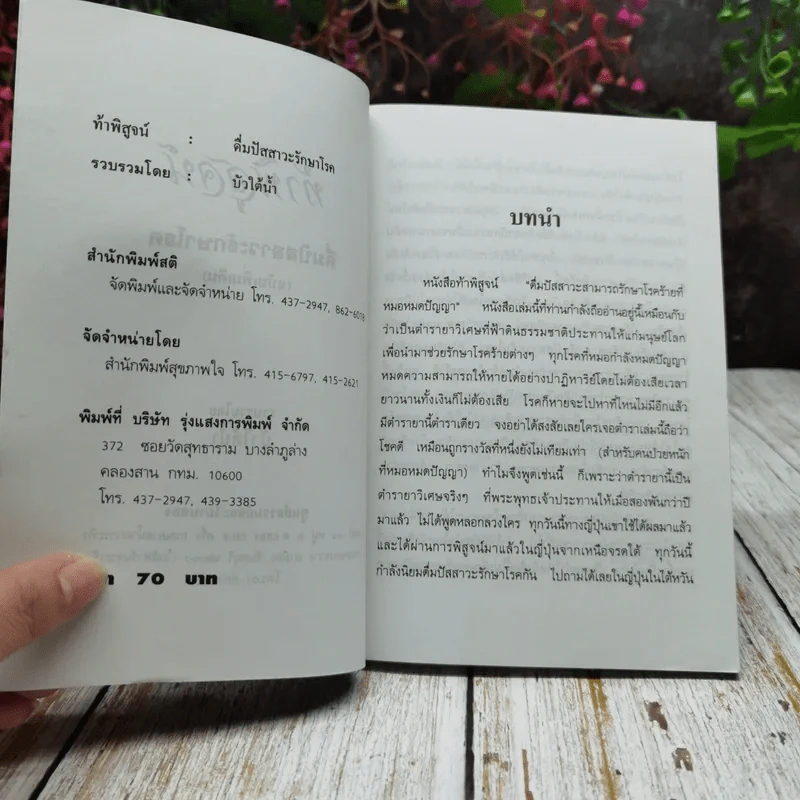 ท้าพิสูจน์ : ดื่มปัสสาวะรักษาโรค
รวบรวมโดย : บัวใต้น้ำ
สำนักพิมพ์สติ
จัดพิมพ์และจัดจำหน่าย โทร. 437-2947, 862-6018
จัดจำหน่ายโดย
สำนักพิมพ์สุขภาพใจ โทร. 415-6797, 415-2621
พิมพ์ที่ บริษัท รุ่งแสงการพิมพ์ จำกัด
372 ซอยวัดสุทธาราม บางลำภูล่าง
คลองสาน กทม. 10600
โทร. 437-2947, 439-3385
70 บาท
บทนำ
หนังสือท้าพิสูจน์ "ดื่มปัสสาวะสามารถรักษาโรคร้ายที่
หมอหมดปัญญา" หนังสือเล่มนี้ที่ท่านกำลังถืออ่านอยู่นี้เหมือนกับ
ว่าเป็นตำรายาวิเศษที่ฟ้าดินธรรมชาติประทานให้แก่มนุษย์โลก
เพื่อนำมาช่วยรักษาโรคร้ายต่างๆ ทุกโรคที่หมอกำลังหมดปัญญา
หมดความสามารถให้หายได้อย่างปาฏิหาริย์โดยไม่ต้องเสียเวลา
ยาวนานทั้งเงินก็ไม่ต้องเสีย โรคก็หายจะไปหาที่ไหนไม่มีอีกแล้ว
มีตำรายานี้ตำราเดียว จงอย่าได้สงสัยเลยใครเจอตำราเล่มนี้ถือว่า
โชคดี เหมือนถูกรางวัลที่หนึ่งยังไม่เทียมเท่า (สำหรับคนป่วยหนัก
ที่หมอหมดปัญญา) ทำไมจึงพูดเช่นนี้ ก็เพราะว่าตำรายานี้เป็น
ตำรายาวิเศษจริงๆ ที่พระพุทธเจ้าประทานให้เมื่อสองพันกว่าปี
มาแล้ว ไม่ได้พูดหลอกลวงใคร ทุกวันนี้ทางญี่ปุ่นเขาใช้ได้ผลมาแล้ว
และได้ผ่านการพิสูจน์มาแล้วในญี่ปุ่นจากเหนือจรดใต้ ทุกวันนี้
กำลังนิยมดื่มปัสสาวะรักษาโรคกัน ไปถามได้เลยในญี่ปุ่นในไต้หวัน